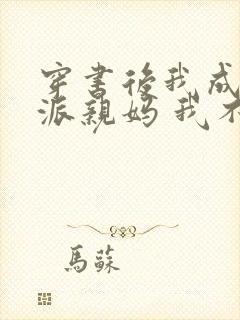 穿書後我成
派親媽 我不
馬蘇